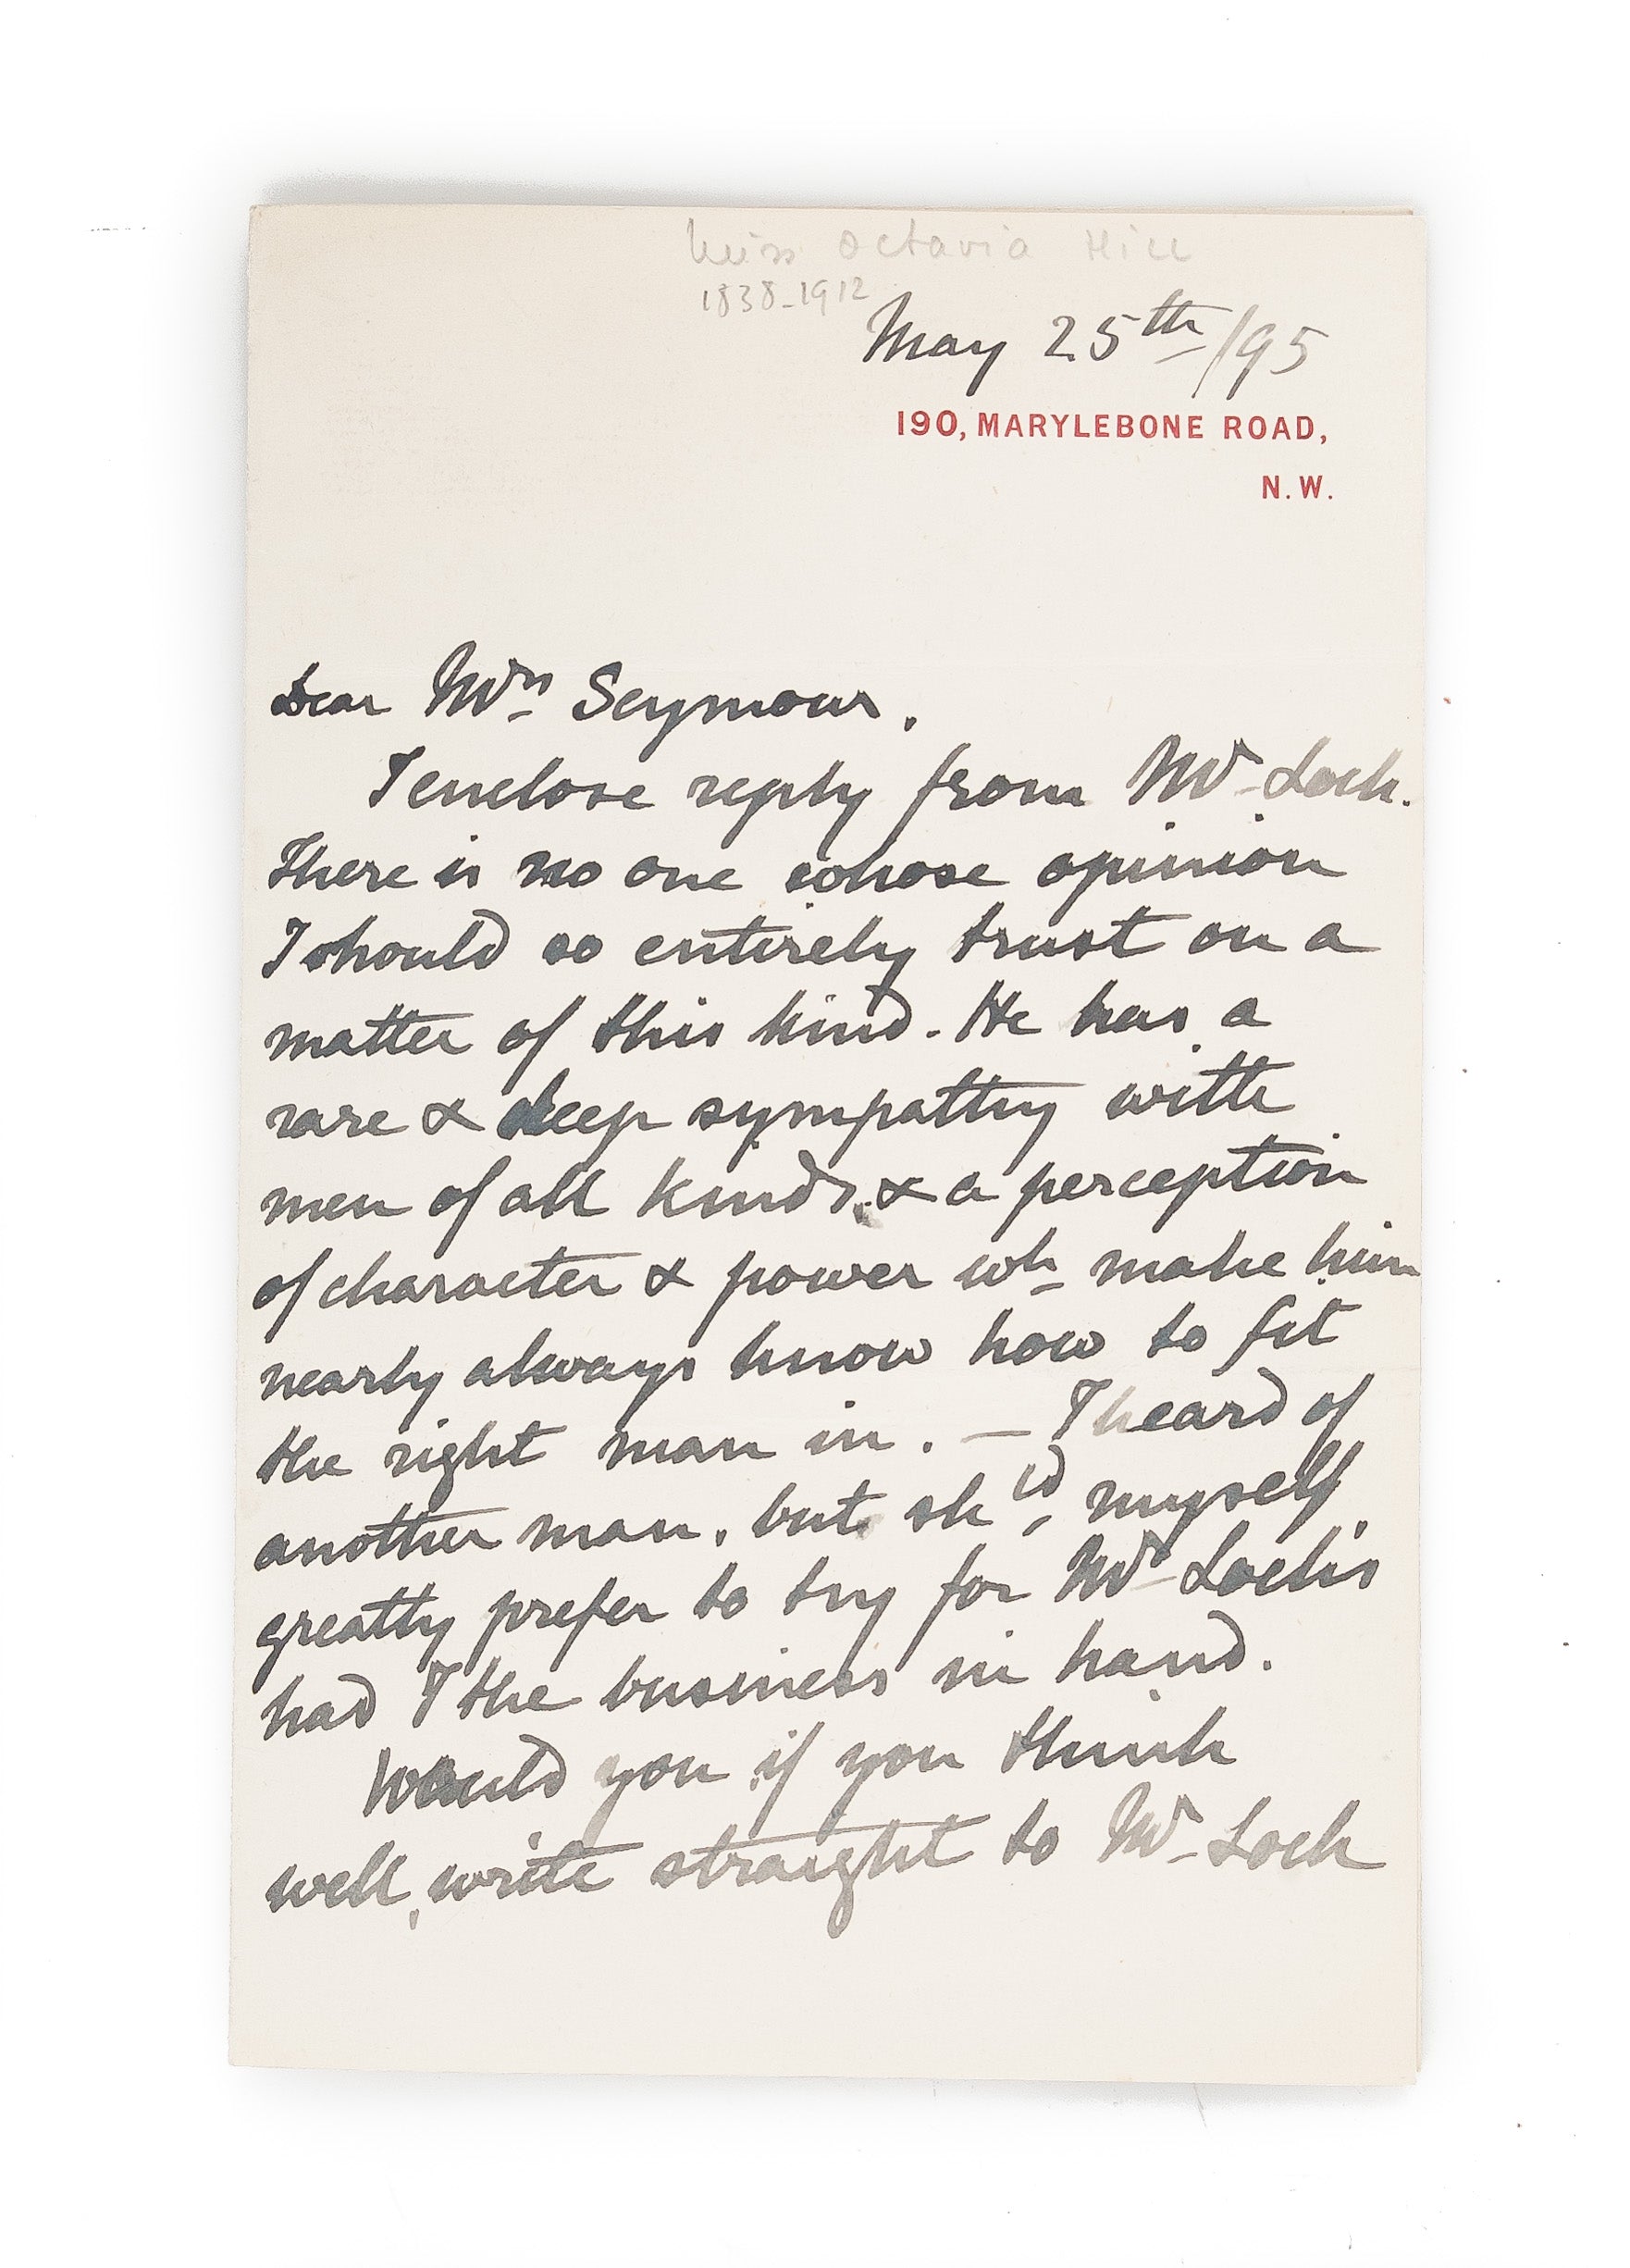 Miss Octavia Hill
1838-1912
May 25th/95
190, MARYLEBONE ROAD,
N.W.
Dear Mrs Seymour,
I enclose reply from Mr Loch.
There is no one whose opinion
I should so entirely trust on a
matter of this kind. He has a
rare & deep sympathy with
men of all kinds, & a perception
of character & power wh make him
nearly always know how to fit
the right man in. — I heard of
another man, but shld, myself,
greatly prefer to try for Mr Loch's
had I the business in hand.
Would you if you think
well, write straight to Mr Loch